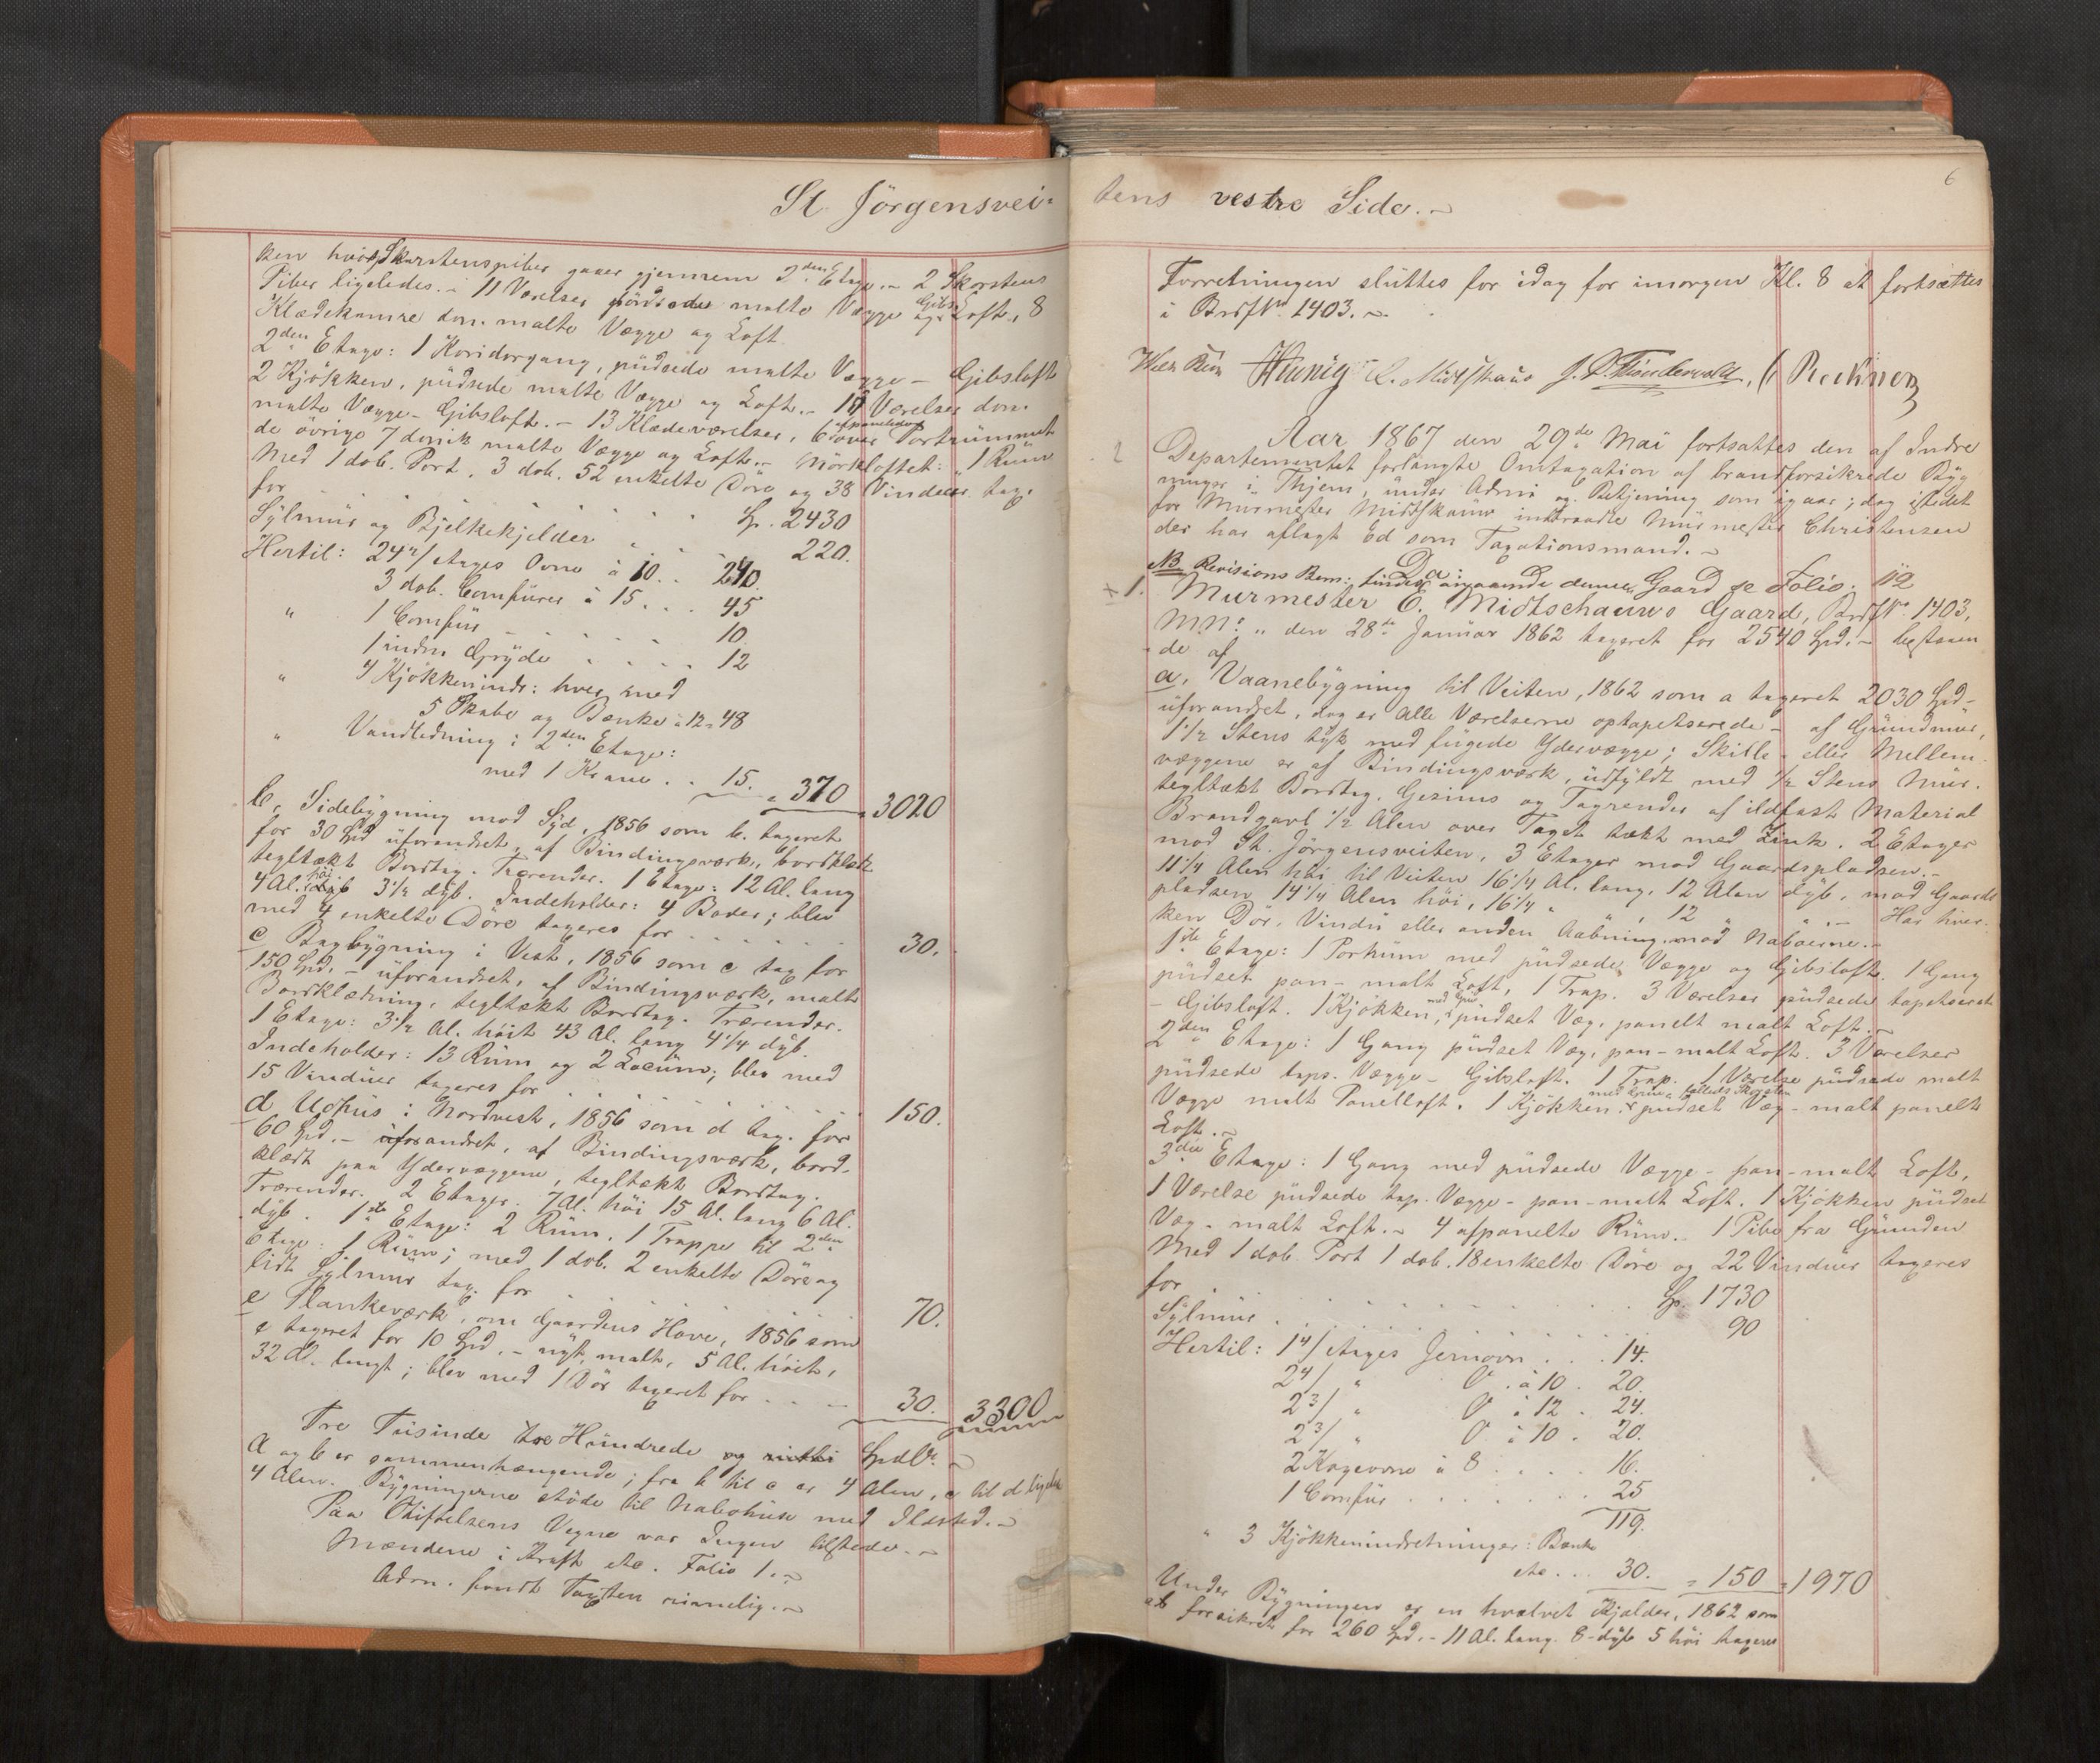 St Jörgensvei-
ken hvis Skorstenspiber gaaer gjennem 2den Etage. - 2 Skorstens
Piber ligeledes. - 11 Værelser püdsede malte Vægge og Gibs Loft, 8
Klædekamre don. malte Vægge og Loft.
2den Etage: 1 Koridorgang, püdsede malte Vægge - Gibsloft
2 Kjökken, püdsede malte Vægge og Loft. - 11 Værelser don.
malte Vægge - Gibsloft. - 13 Klædeværelser, 6 over Portrümmet afpanelede
de övrige 7 donik malte Vægge og Loft. - Mörkloftet: 1 Rüm
Med 1 dob. Port, 3 dob. 52 enkelte Döre og 38 Vinduer tax.
for . . . . Sp. 2430
Sylmür og Bjelkekjelder . . . 220.
Hertil: 24 2/ Etages Ovne à 10 . . 240.
3 dob. Comfürer à 15 . . . 45
" 1 Comfür . . . . . 10.
1 indm Gryde . . . . . 12
" 4 Kjökkenindr: hver med
5 Skabe og Bænke à 12 = 48
" Vandledning i 2den Etage:
med 1 Krane . . 15. = 370 = 3020
b, Sidebygning mod Syd, 1856 som b. taxeret
for 30 Spd üforandret, af Bindingsværk, bordklædt
tegltækt Bordtag. Trærender. 1 Etage: 12 Al. lang
4 Al. höi 3 1/2 dyb. Indeholder: 4 Boder; blev
med 4 enkelte Döre taxeres for . . . . . . 30.
c Bagbygning i Vest, 1856 som c tax for
150 Spd. - üforandret, af Bindingsværk, malt
Bordklædning, tegltækt Bordtag. Trærender.
1 Etage: 3 1/2 Al. höit 43 Al. lang 4 1/4 dyb.
Indeholder: 13 Rüm og 2 Locüm; blev med
15 Vindüer taxeres for . . . . . . . 150.
d Udhüs i Nordvest, 1856 som d tax. for
60 Spd. - üforandret, af Bindingsværk, bord-
klædt paa Ydervæggene, tegltækt Bordtag.
Trærender. 2 Etager. 7 Al. höi 15 Al. lang 6 Al.
dyb. 1ste Etage: 2 Rüm. 1 Trappe til 2den
Etage: 1 Rüm; med 1 dob. 2 enkelte Döre og
lidt Sylmür tax. for . . . . . . . 70.
e Plankeværk, om Gaardens Have, 1856 som
e taxeret for 10 Spd. - nyt, malt, 5 Al. höit,
32 Al. langt; blev med 1 Dör taxeret for . . . 30. 3300
Tre Tüsinde tre Hündrede Spdlr. -
a og b er sammenhængende; fra b til c er 4 Alen, c til d ligeledes
4 Alen. Bygningerne stöde til Nabohüse med Ildsted. -
Paa Stiftelsens Vegne var Ingen tilstede. -
Mændene i Kraft etc. Folio 1. -
Adm. fandt Taxten rimelig. -
6
tens vestre Side. -
Forretningen slüttes for idag for imorgen Kl. 8 at fortsættes
i Brdf No 1403. -
Hünig E. Midtskaus
Aar 1867 den 29de Mai fortsattes den af Indre
Departementet forlangte Omtaxation af brandforsikrede Byg
ninger i Thjem, ünder Adm og Betjening som igaar; dog istedet
for Mürmester Midtskaus indtraadte Mürmester Christensen
der har aflagt Ed som Taxationsmand. -
Da:
NB Revisions Bem: findes angaaende denne Gaard se Folio 12
1. Murmester E. Midtschauws Gaard, Brdf No 1403,
M.No " den 28de Januar 1862 taxeret for 2540 Spd. - bestaaen
de af
a, Vaanebygning til Veiten, 1862 som a taxeret 2030 Spd -
üforandret, dog er alle Værelserne optapetserede - af Gründmür,
1 1/2 Stens tyk med fügede Ydervægge; Skille- eller Mellem-
væggene er af Bindingsværk, üdfyldt med 1/2 Stens Mür.
tegltækt Bordtag. Gesims og Tagrender af ildfast Material
Brandgavl 1/2 Alen over Taget tækt med Zink. 2 Etager
mod St. Jörgensveiten, 3 Etager mod Gaardspladsen. -
11 1/4 Alen höi til Veiten 16 1/4 Al. lang, 12 Alen dyb, mod Gaards
pladsen 14 1/4 Alen höi, 16 1/4 " , 12 " " . - Har hver-
ken Dör, Vindü eller anden Aabning mod Naboerne. -
1ste Etage: 1 Portrüm med püdsede Vægge og Gibsloft. 1 Gang
püdset pan - malt Loft, 1 Trap. 3 Værelser püdsede tapetserede
- Gibsloft. 1 Kjökken, püdset Væg, panelt malt Loft. -
2den Etage: 1 Gang püdset Væg, pan - malt Loft. 3 Værelser
püdsede taps. Vægge - Gibsloft. 1 Trap. 1 Værelse püdsede malt
Vægge malt Panelloft. 1 Kjökken püdset Væg - malt panelt
Loft. -
3die Etage: 1 Gang med püdsede Vægge - pan - malt Loft,
1 Værelse püdsede tap. Vægge - pan - malt Loft. 1 Kjökken püdset
Væg - malt Loft. - 4 afpanelte Rüm. - 1 Pibe fra Gründen
Med 1 dob Port 1 dob. 18 enkelte Döre og 22 Vindüer taxeres
for . . . . . . . Sp. 1730
Sylmür . . . . . . . 90
Hertil: 1 4/ Etages Jernovn . . . 14.
2 4/ " O à 10 . 20.
2 3/ " O à 12 . 24.
2 3/ " O à 10 . 20.
2 Kogeovne à 8 . . . . 16.
1 Comfür . . . . . . . 25
119.
" 3 Kjökkenindretninger: Bænke
etc . . . 30. = 150 = 1970
Under Bygningen er en hvælvet Kjelder, 1862 som
forsikret for 260 Spd. - 11 Al. lang. 8 - dyb 5 höi taxeres